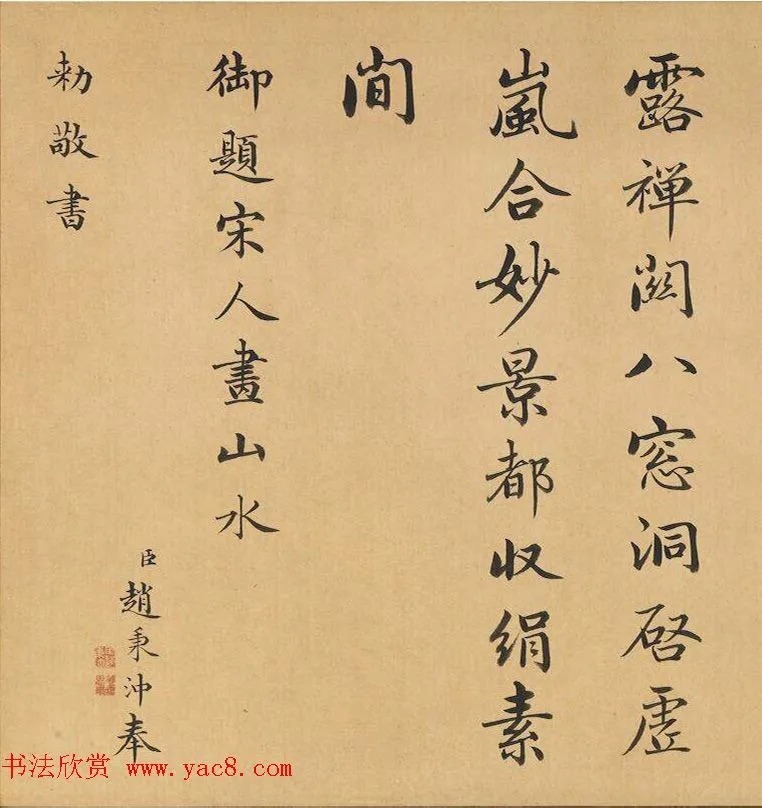 露禅関八窓洞啓虚
嵐合妙景都収絹素
間
御題宋人畫山水
臣趙秉沖奉
勅敬書
书法欣赏 www.yac8.com